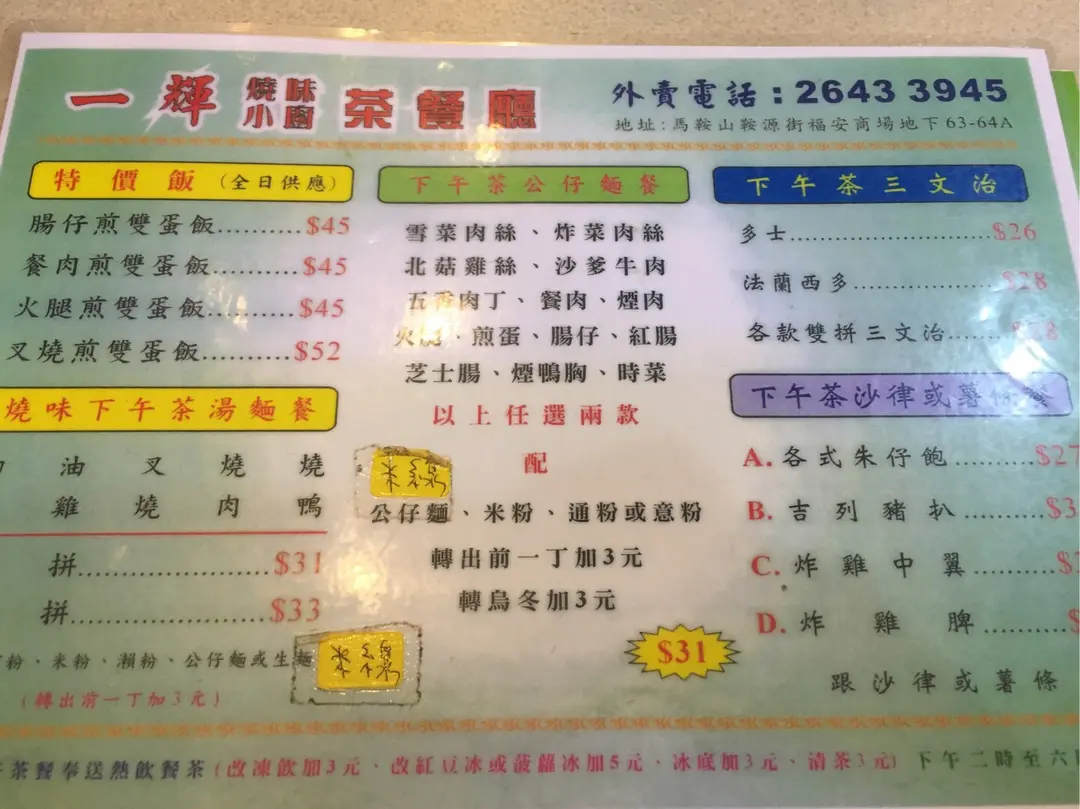 一輝 燒味小廚 茶餐廳
外賣電話:2643 3945
地址:馬鞍山鞍源街福安商場地下63-64A
特價飯(全日供應)
腸仔煎雙蛋飯..........$45
餐肉煎雙蛋飯..........$45
火腿煎雙蛋飯..........$45
叉燒煎雙蛋飯..........$52
燒味下午茶湯麵餐
油 叉 燒 燒
雞 燒 肉 鴨
拼......................$31
拼......................$33
粉、米粉、瀨粉、公仔麵或生麵
(轉出前一丁加3元)
下午茶公仔麵餐
雪菜肉絲、炸菜肉絲
北菇雞絲、沙爹牛肉
五香肉丁、餐肉、煙肉
火腿、煎蛋、腸仔、紅腸
芝士腸、煙鴨胸、時菜
以上任選兩款
配
公仔麵、米粉、通粉或意粉
轉出前一丁加3元
轉烏冬加3元
$31
下午茶三文治
多士......................$26
法蘭西多..................$28
各款雙拼三文治
下午茶沙律或薯條
A. 各式朱仔飽..........$27
B. 吉列豬扒..........$3
C. 炸雞中翼..........$
D. 炸雞脾..........$
跟沙律或薯條
茶餐奉送熱飲餐茶(改凍飲加3元、改紅豆冰或菠蘿冰加5元、冰底加3元、清茶3元) 下午二時至六